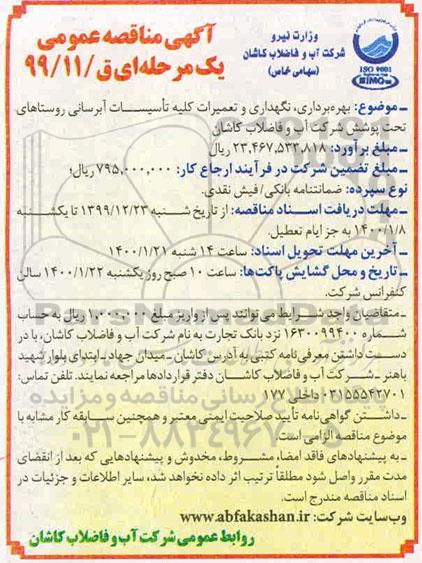 آگهی مناقصه عمومی
یک مرحله‌ای ق/۹۹/۱۱
وزارت نیرو
شرکت آب و فاضلاب کاشان
(سهامی خاص)
ISO 9001
IMQ
ـ موضوع: بهره‌برداری، نگهداری و تعمیرات کلیه تأسیسات آبرسانی روستاهای
تحت پوشش شرکت آب و فاضلاب کاشان
ـ مبلغ برآورد: ۲۳,۴۶۷,۵۳۲,۸۱۸ ریال
ـ مبلغ تضمین شرکت در فرآیند ارجاع کار: ۷۹۵,۰۰۰,۰۰۰ ریال؛
نوع سپرده: ضمانتنامه بانکی/ فیش نقدی.
ـ مهلت دریافت اسناد مناقصه: از تاریخ شنبه ۱۳۹۹/۱۲/۲۳ تا یکشنبه
۱۴۰۰/۱/۸ به جز ایام تعطیل.
ـ آخرین مهلت تحویل اسناد: ساعت ۱۴ شنبه ۱۴۰۰/۱/۲۱
ـ تاریخ و محل گشایش پاکت‌ها: ساعت ۱۰ صبح روز یکشنبه ۱۴۰۰/۱/۲۲ سالن
کنفرانس شرکت.
ـ متقاضیان واجد شرایط می‌توانند پس از واریز مبلغ ۱,۰۰۰,۰۰۰ ریال به حساب
شماره ۱۶۳۰۰۹۹۴۰۰ نزد بانک تجارت به نام شرکت آب و فاضلاب کاشان، با در
دست داشتن معرفی‌نامه کتبی به آدرس کاشان ـ میدان جهاد ـ ابتدای بلوار شهید
باهنر ـ شرکت آب و فاضلاب کاشان دفتر قراردادها مراجعه نمایند. تلفن تماس:
۰۳۱۵۵۵۴۲۷۰۱ داخلی ۱۷۷
ـ داشتن گواهی‌نامه تأیید صلاحیت ایمنی معتبر و همچنین سابقه کار مشابه با
موضوع مناقصه الزامی است.
ـ به پیشنهادهای فاقد امضا، مشروط، مخدوش و پیشنهادهایی که بعد از انقضای
مدت مقرر واصل شود مطلقاً ترتیب اثر داده نخواهد شد، سایر اطلاعات و جزئیات در
اسناد مناقصه مندرج است.
وب‌سایت شرکت: www.abfakashan.ir
روابط عمومی شرکت آب و فاضلاب کاشان